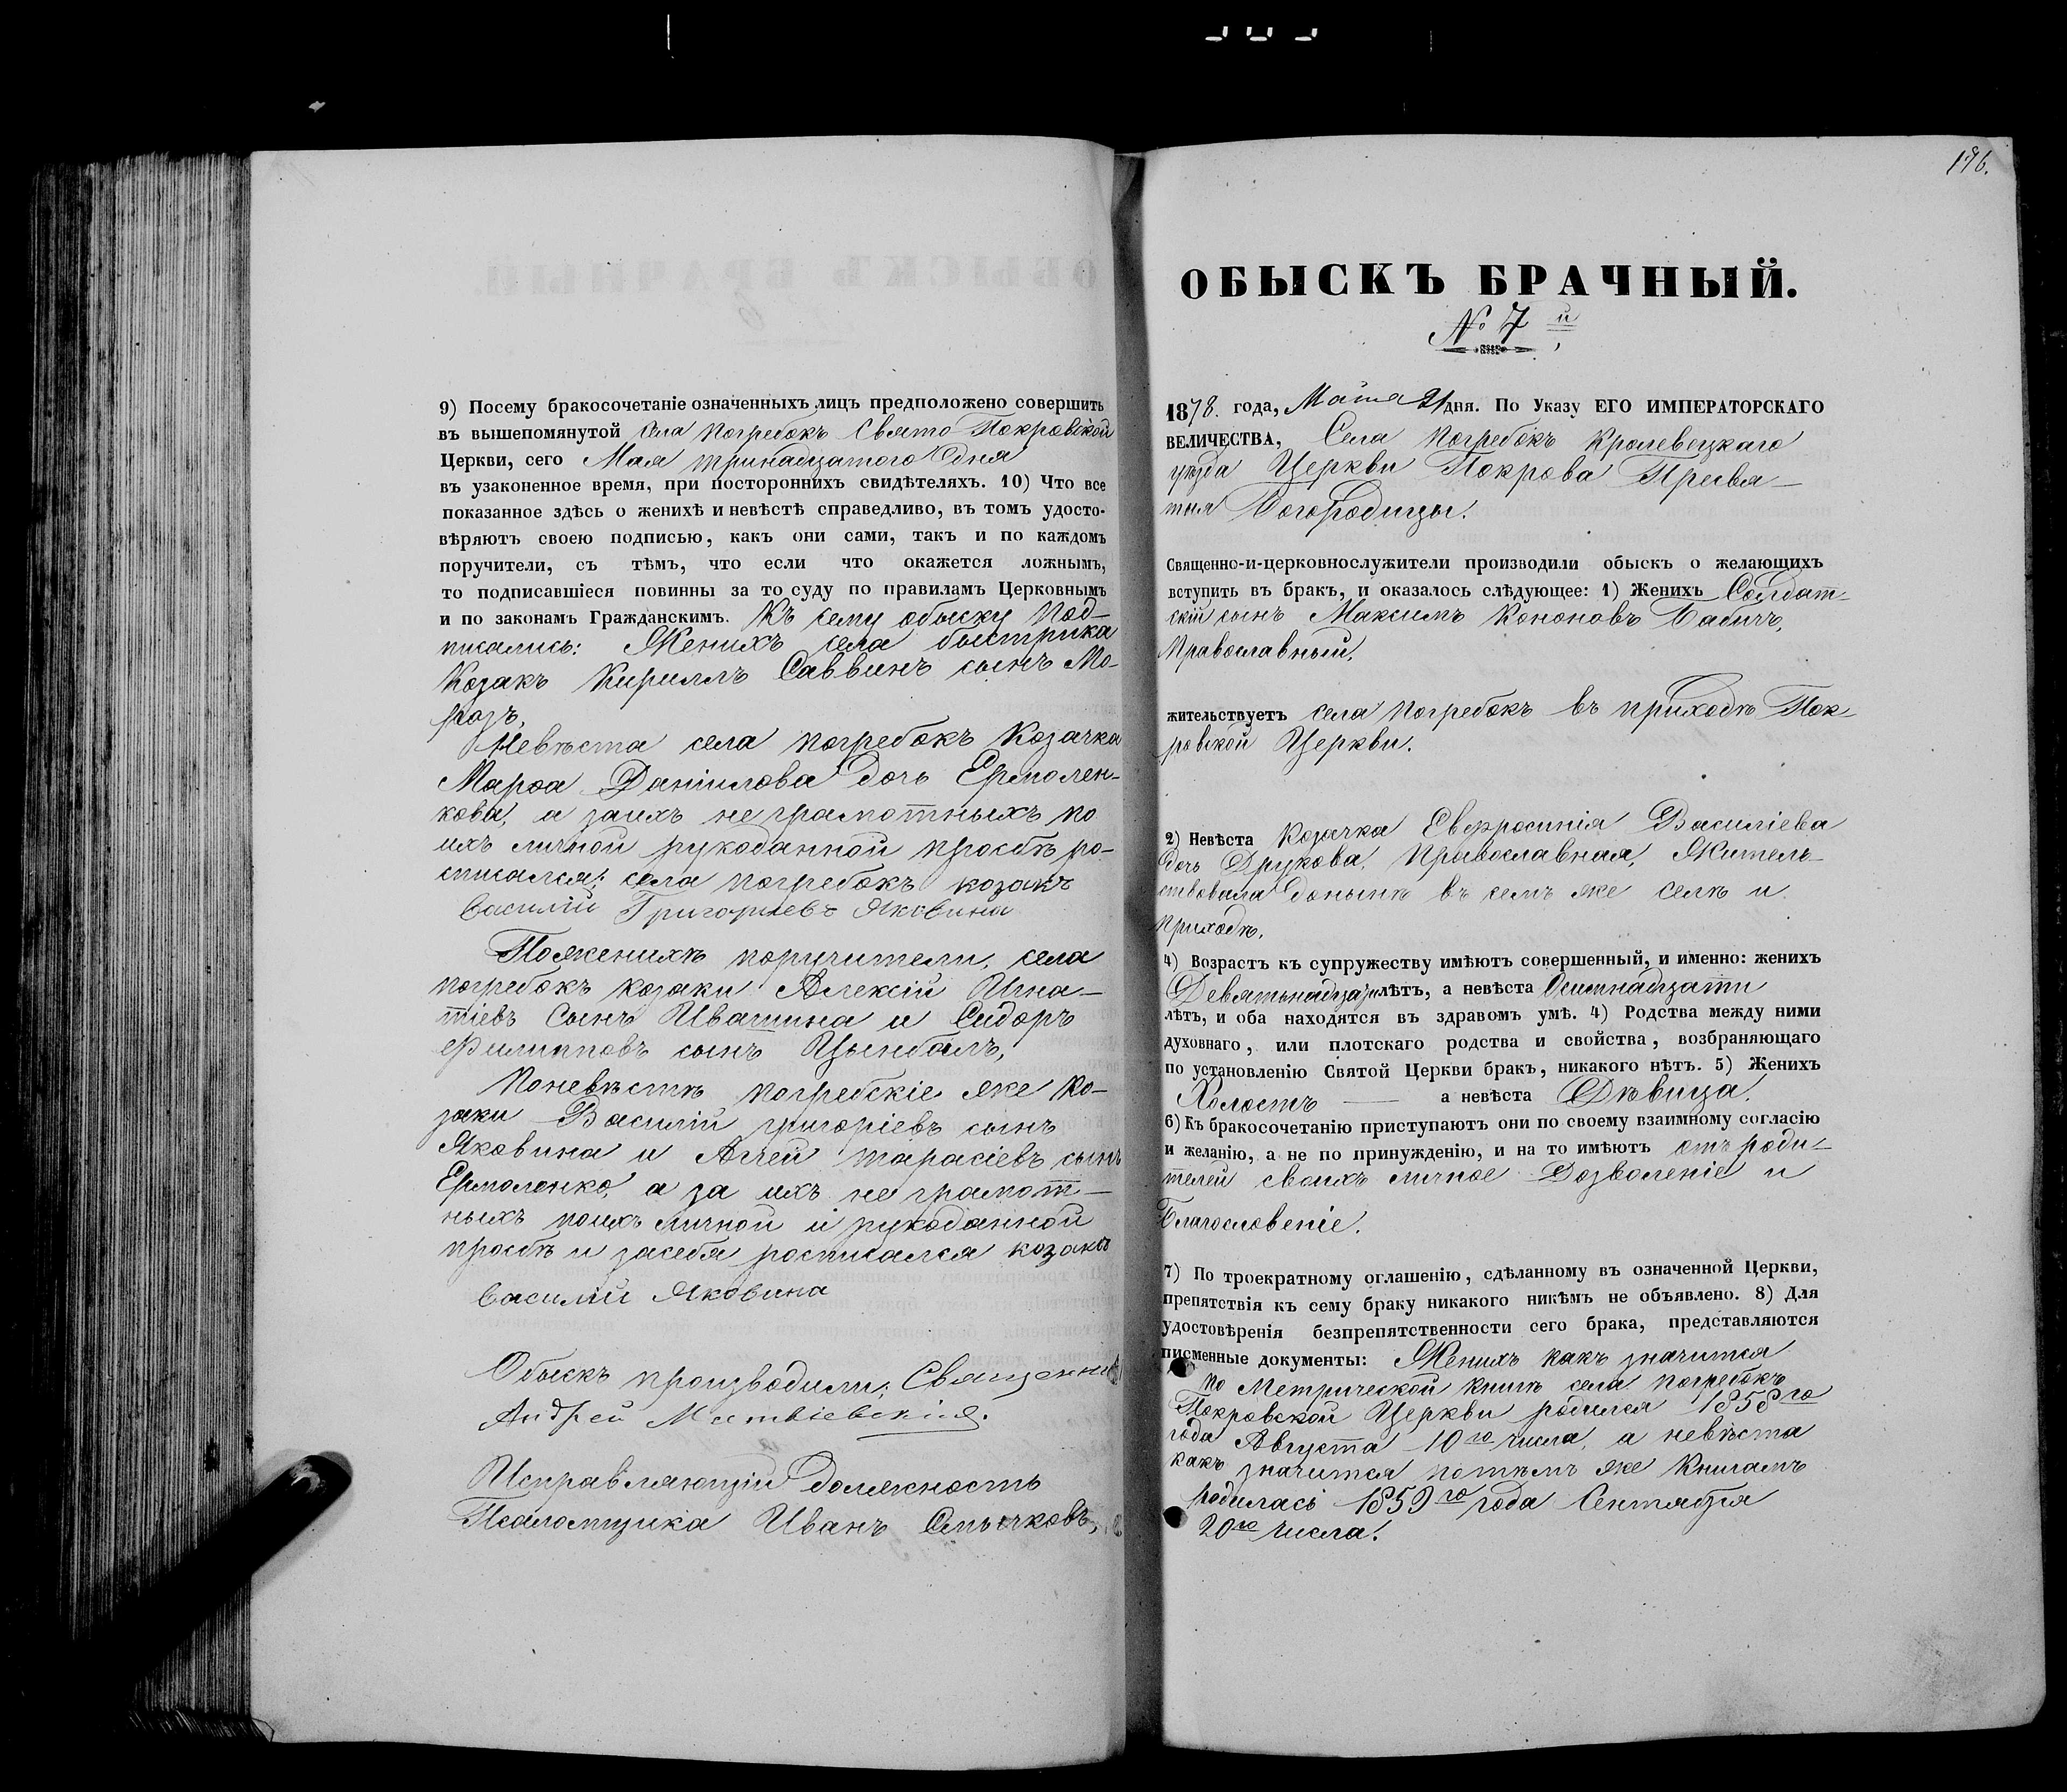 9) Посему бракосочетаніе означенныхъ лицъ предположено совершить
въ вышепомянутой села Погребокъ Свято-Покровской
Церкви, сего Мая тринадцатого дня
въ узаконенное время, при постороннихъ свидѣтеляхъ. 10) Что все
показанное здѣсь о женихѣ и невѣстѣ справедливо, въ томъ удосто-
вѣряютъ своею подписью, какъ они сами, такъ и по каждомъ
поручители, съ тѣмъ, что если что окажется ложнымъ,
то подписавшіеся повинны за то суду по правиламъ Церковнымъ
и по законамъ Гражданскимъ. Къ сему обыску под-
писались: Женихъ села быстрика
Козакъ Кириллъ Саввинъ сынъ Мо-
розъ,
Невѣста села погребокъ Козачка
Марѳа Даніилова дочь Ермолен-
кова, а заихъ не грамотныхъ по
ихъ личной рукоданной просьбѣ ро-
списался: села погребокъ козакъ
Василій Григоріевъ Яковина
Поженихѣ поручители, села
погребокъ козаки Алексій Игна-
тіевъ Сынъ Ивашина и Сидоръ
Филипповъ сынъ Цымбалъ,
Поневѣстѣ погребскіе же ко-
заки Василій григоріевъ сынъ
Яковина и тарасіевъ сынъ
Ермоленко, а за ихъ не грамот-
ныхъ поихъ личной и рукоданной
просьбѣ и засебя росписался козакъ
Василій Яковина
Обыскъ производили: Священник
Андрей Матвіевскій.
Исправляющій должность
Псаломщика Иванъ Смычковъ,
196.
ОБЫСКЪ БРАЧНЫЙ.
№ 7й
1878. года, Маія 21 дня. По Указу ЕГО ИМПЕРАТОРСКАГО
ВЕЛИЧЕСТВА, Села Погребокъ Кролевецкаго
уѣзда Церкви Покрова Пресвя-
тыя Богородицы.
Священно-и-церковнослужители производили обыскъ о желающихъ
вступить въ бракъ, и оказалось слѣдующее: 1) Женихъ Солдат-
скій сынъ Максимъ Кононовъ Бабичъ,
Православный.
жительствуетъ села погребокъ въ приходѣ Пок-
ровской Церкви.
2) Невѣста Козачка Евфросинія Василіева
дочь Друкова, Православная, Житель-
ствовала донынѣ въ семъ же селѣ и
приходѣ.
4) Возрастъ къ супружеству имѣютъ совершенный, и именно: женихъ
Девятьнадцати лѣтъ, а невѣста Осимнадцати
лѣтъ, и оба находятся въ здравомъ умѣ. 4) Родства между ними
духовнаго, или плотскаго родства и свойства, возбраняющаго
по установленію Святой Церкви бракъ, никакого нѣтъ. 5) Женихъ
Холостъ — а невѣста Дѣвица.
6) Къ бракосочетанію приступаютъ они по своему взаимному согласію
и желанію, а не по принужденію, и на то имѣютъ отъ роди-
телей своихъ личное Дозволеніе и
Благословеніе.
7) По троекратному оглашенію, сдѣланному въ означенной Церкви,
препятствія къ сему браку никакого никѣмъ не объявлено. 8) Для
удостовѣренія безпрепятственности сего брака, представляются
писменные документы: Женихъ какъ значится
по Метрической книгѣ села погребокъ
Покровской Церкви родился 1858го
года Августа 10го числа, а невѣста
какъ значится потѣмъ же Книгамъ
родилась 1859го года Сентября
20го числа.